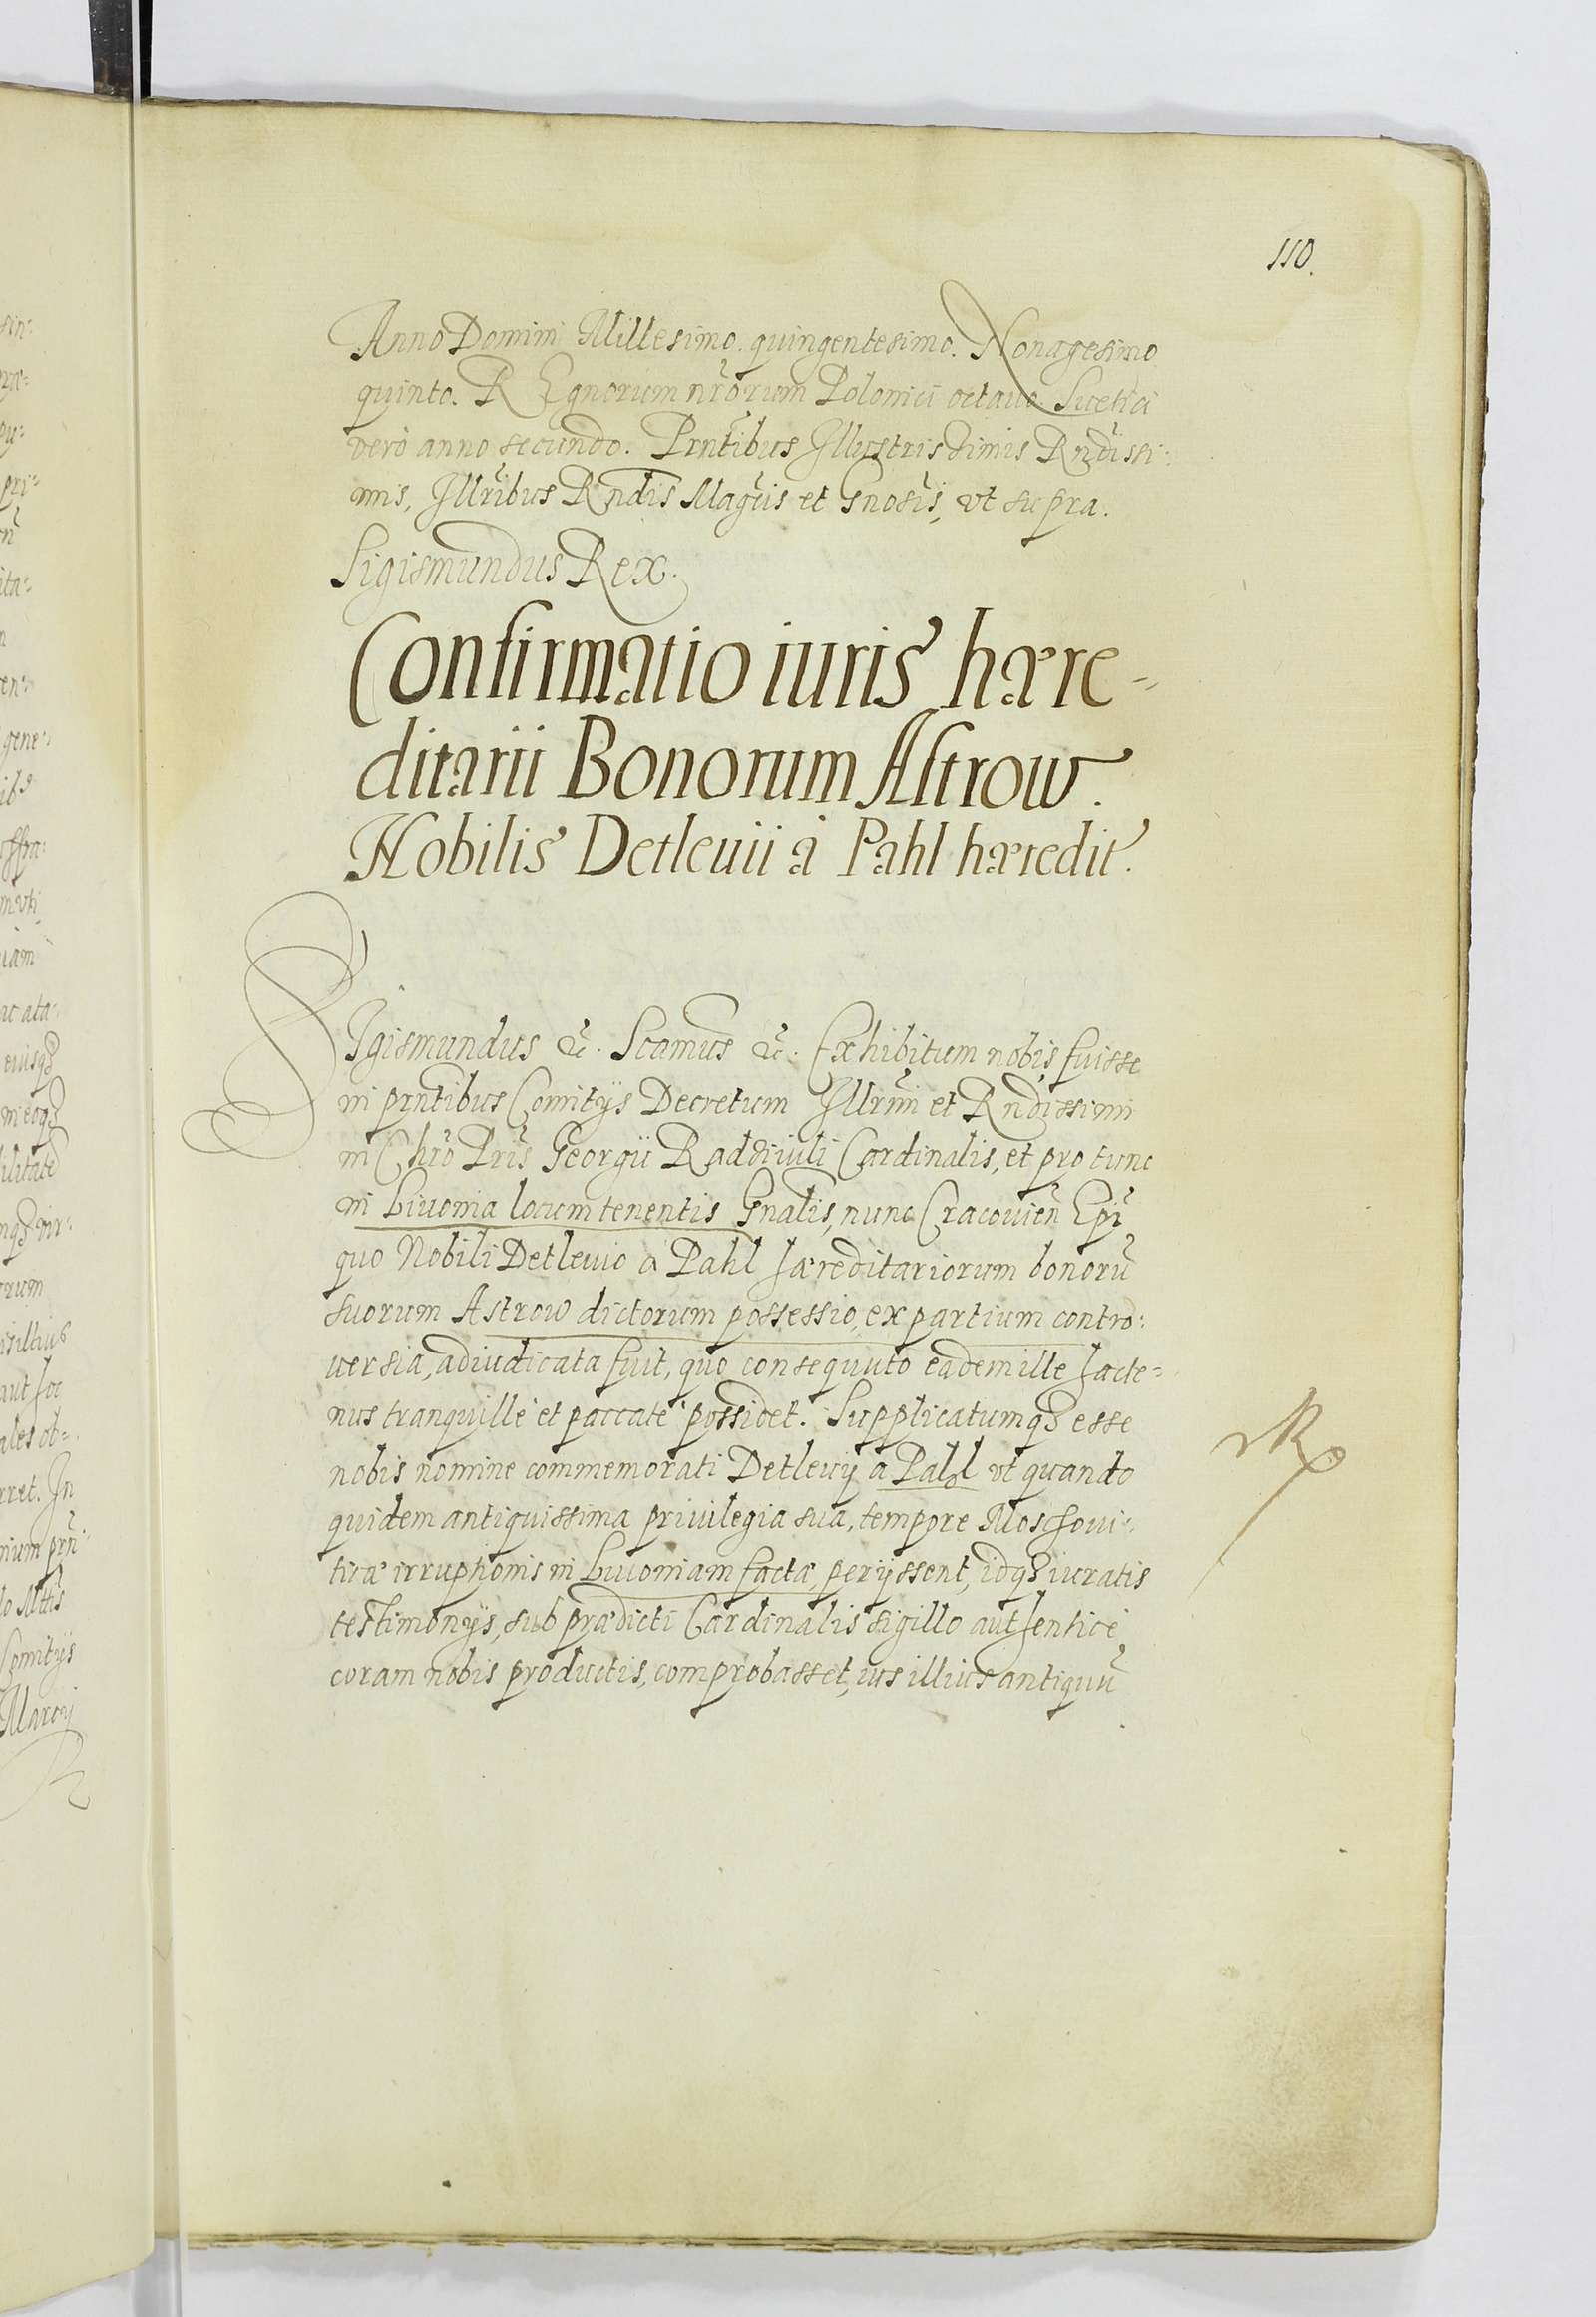 110.
Anno Domini Millesimo quingentesimo. Nonagesimo
quinto. REgnorum nr̃orum Poloniæ octauo Suetiæ
verò anno secundo. Prñtibus Illustrissimis Rñdissi:
mis, Illr̃ibus Rñdis Mag̃cis et Gnosis̃, vt supra.
Sigismundus Rex.
Confirmatio iuris hære-
ditarii Bonorum Astrow.
Nobilis Detleuii à Pahl hæredit.
SIgismundus &c̃. Scamus &c̃. Exhibitum nobis fuisse
in prñtibus Comitijs Decretum Illr̃mi et Rñdissimi
in Chrõ Pris̃ Georgii Radziuili Cardinalis, et pro tunc
in Liuonia locum tenentis Gñalis, nunc Cracouieñ Epĩ
quo Nobili Detleuio a Pahl hæreditariorum bonorũ
suorum Astrow dictorum possessio, ex partium contro:
uersia, adiudicata fuit, quo consequuto eadem ille hacte=
nus tranquillè et paccatè possidet. Supplicatumqꝫ esse
nobis nomine commemorati Detleuij a Pahl vt quando
quidem antiquissima priuilegia sua, tempore Moschoui:
ticæ irruptionis in Liuoniam factæ, perijssent, idqꝫ iuratis
testimonijs, sub prædicti Cardinalis sigillo authenticè
coram nobis productis, comprobasset, ius illius antiquũ